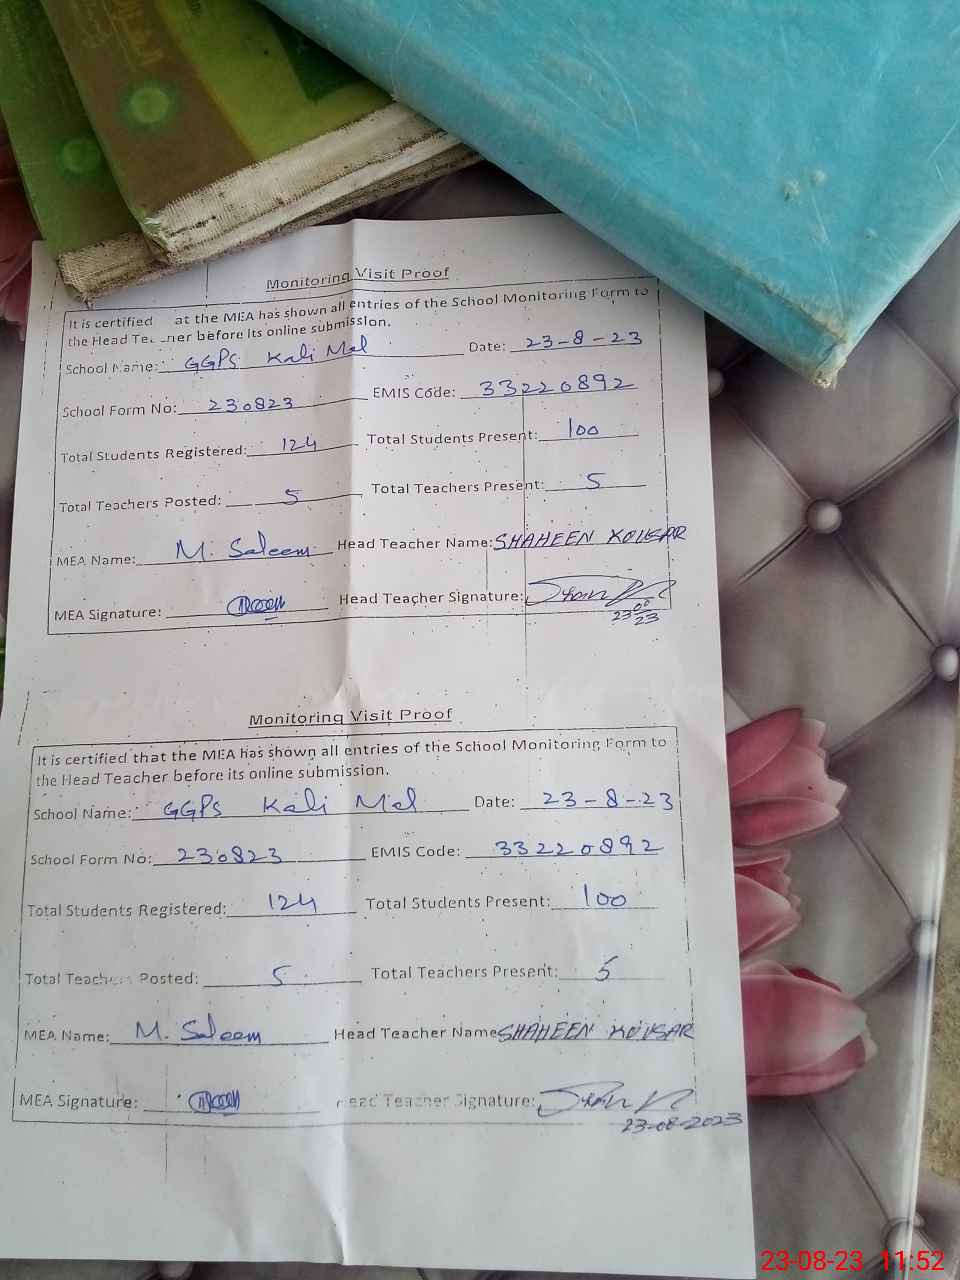 Monitoring Visit Proof
It is certified at the MEA has shown all entries of the School Monitoring Form to
the Head Te ner before its online submission.
School Name: GGPS Kali Mal Date: 23-8-23
School Form No: 230823 EMIS Code: 33220892
Total Students Registered: 124 Total Students Present: 100
Total Teachers Posted: 5 Total Teachers Present: 5
MEA Name: M. Saleem Head Teacher Name: SHAHEEN KOUSAR
MEA Signature: Head Teacher Signature:
23
Monitoring Visit Proof
It is certified that the MEA has shown all entries of the School Monitoring Form to
the Head Teacher before its online submission.
School Name: GGPS Kali Mal Date: 23-8-23
School Form No: 230823 EMIS Code: 33220892
Total Students Registered: 124 Total Students Present: 100
Total Teachers Posted: 5 Total Teachers Present: 5
MEA Name: M. Saleem Head Teacher Name SHAHEEN KOUSAR
MEA Signature: Head Teacher Signature:
23-08-2023
23-08-23 11:52